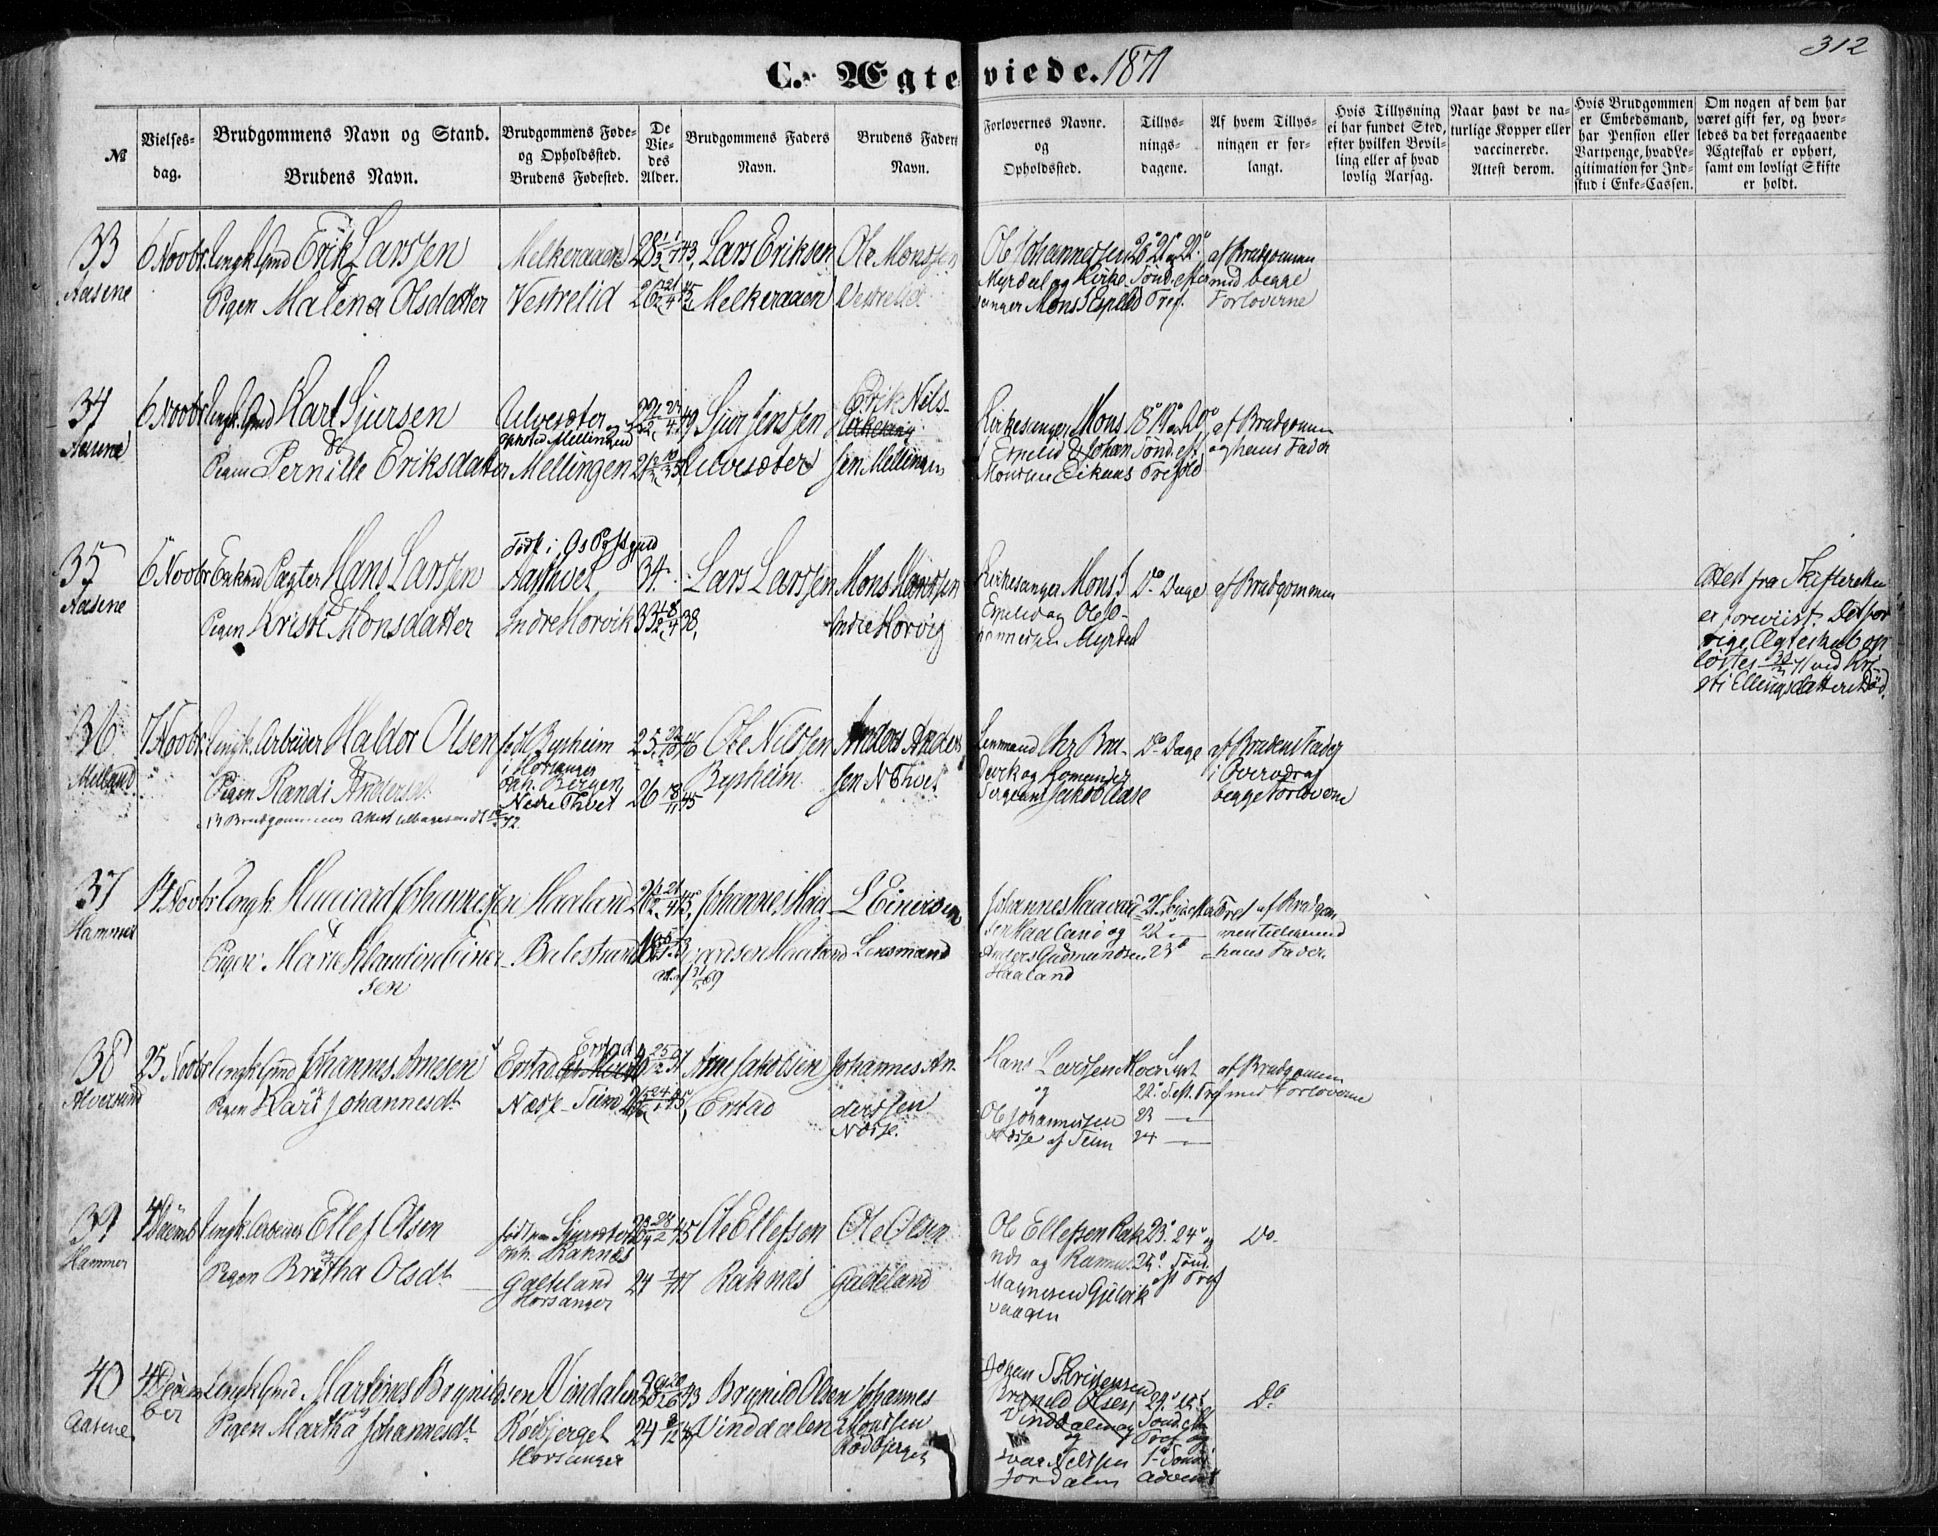 312
C. Ægteviede. 1871
№
Vielses-
dag.
Brudgommens Navn og Stand.
Brudens Navn.
Brudgommens Føde-
og Opholdssted.
Brudens Fødested.
De
Vie-
des
Alder.
Brudgommens Faders
Navn.
Brudens Faders
Navn.
Forlovernes Navne.
og
Opholdssted.
Tillys-
nings-
dagene.
Af hvem Tillys-
ningen er for-
langt.
Hvis Tillysning
ei har fundet Sted,
efter hvilken Bevil-
ling eller af hvad
lovlig Aarsag.
Naar havt de na-
turlige Kopper eller
vaccinerede.
Attest derom.
Hvis Brudgommen
er Embedsmand,
har Pension eller
Vartpenge, hvad Le-
gitimation for Ind-
skud i Enke-Cassen.
Om nogen af dem har
været gift før, og hvor-
ledes da det foregaaende
Ægteskab er ophørt,
samt om lovligt Skifte
er holdt.
33
Aasene
6 Novbr.
Ungk. Gmd Erik Larssen
og
Pigen Malena Olsdatter
Melkeraaen
Vestrelid
28
26
Lars Eriksen
Melkeraaen
Ole Monssen
Vestrelid
Ole Johannessen
Myrdal og Kirke-
sanger Mons J Espelid
20° 21° og 22°
Sønd. efter
Tref.
af Brudgommen
med begge
Forloverne
34
Aasene
6 Novbr
Ungk. Gmd Karl Sjursen
og
Pigen Pernille Eriksdatter
Ulvesæter
ophold Mellingen
Mellingen
22
Sjur Jenssen
Ulvesæter
Erik Nils-
sen Mellingen
Kirkesanger Mons
J Espelid & Johan
Monsen Eikaas
18° 19° og 20°
Sønd. eft
Trefold
af Brudgommen
og hans Fader
35
Aasene
6 Novbr
Enkmd Pagter Hans Larssen
og
Pigen Kristi Monsdatter
Født i Os Præstgjeld
Indre Horvik
34
33
Lars Larssen
Mons Monssen
Indre Horvig
Kirkesanger Mons J
Espelid og Ole Jo-
hannessen Myrdal
Do Dage
af Brudgommen
Attest fra Skifteretten
er foreviist. Det for-
rige Ægteskab op-
løstes 71 ved Kri-
sti Ellingsdatters Død.
36
Meland
7 Novbr.
Ungk. Arbeider Haldor Olsen
og
Pigen Randi Andersdt.
Brudgommens Attest tilbagesendt 72.
født Bysheim
i Horsanger
oph. Bergen
Nedre Thvet
25 22/10 46
26 18/11 45
Ole Nilssen
Bysheim
Anders Anders
sen N Thvet
Lensmand Chr Bra-
Sergeant Jakob
Do Dage
af Brudens Fader
i Overværelse af
begge Forloverne
37
Hammer
14 Novbr
Ungk Haavard Johannessen
og
Pigen Marie Einer-
sen
Haaland
Balestrand
26
Johannes Haa-
vardsen Haaland
L Einersen
Lensmand
Johannes Haavard
sen Haaland og
Anders Gudmundsen
Haaland
21
22
23
af Brudgom-
men tilligemed
hans Fader.
38
Alversund
25 Novbr
Ungk Gmd Johannes Arnesen
og
Pigen Kari Johannesdt.
Erstad
Erstad
Næsse - Seim
Arne Jakobsen
Erstad
Johannes An-
derssen
Næsse.
Hans Larssen
og
Ole Johannessen
Næsse af Seim
22. S. eft. Tref
23
24
af Brudgommen
med Forloverne
39
Hammer
4 Decemb
Ungk. Arbeider Ellef Olsen
og
Pigen Britha Olsdt.
født paa Sjursæter
oph. Raknæs
Galteland
Horsanger
24 1/7 47
Ole Ellefsen
Raknæs
Ole Olsen
Galteland
Ole Ellefssen Rak-
næs og Rasmus
Magnesen Gjelvik
vaagen
23° 24° og
25° Sønd.
eft Tref
Do
40
Aasene
4 Decem
ber
Ungk Gmd Martines Brynildsen
og
Pigen Martha Johannesdt
Vindalen
Rødbjerget
Horsanger
24
Brynild Olsen
Vinddalen
Johannes
Monssen
Rødbjerget
Johan S Kristensen
Brynild Olsen
Vinddalen og
og
Ivar Nilssen
Jordalen
24° 25°
Sønd. eft.
Tref og
1° Sønd i
Advent
Do